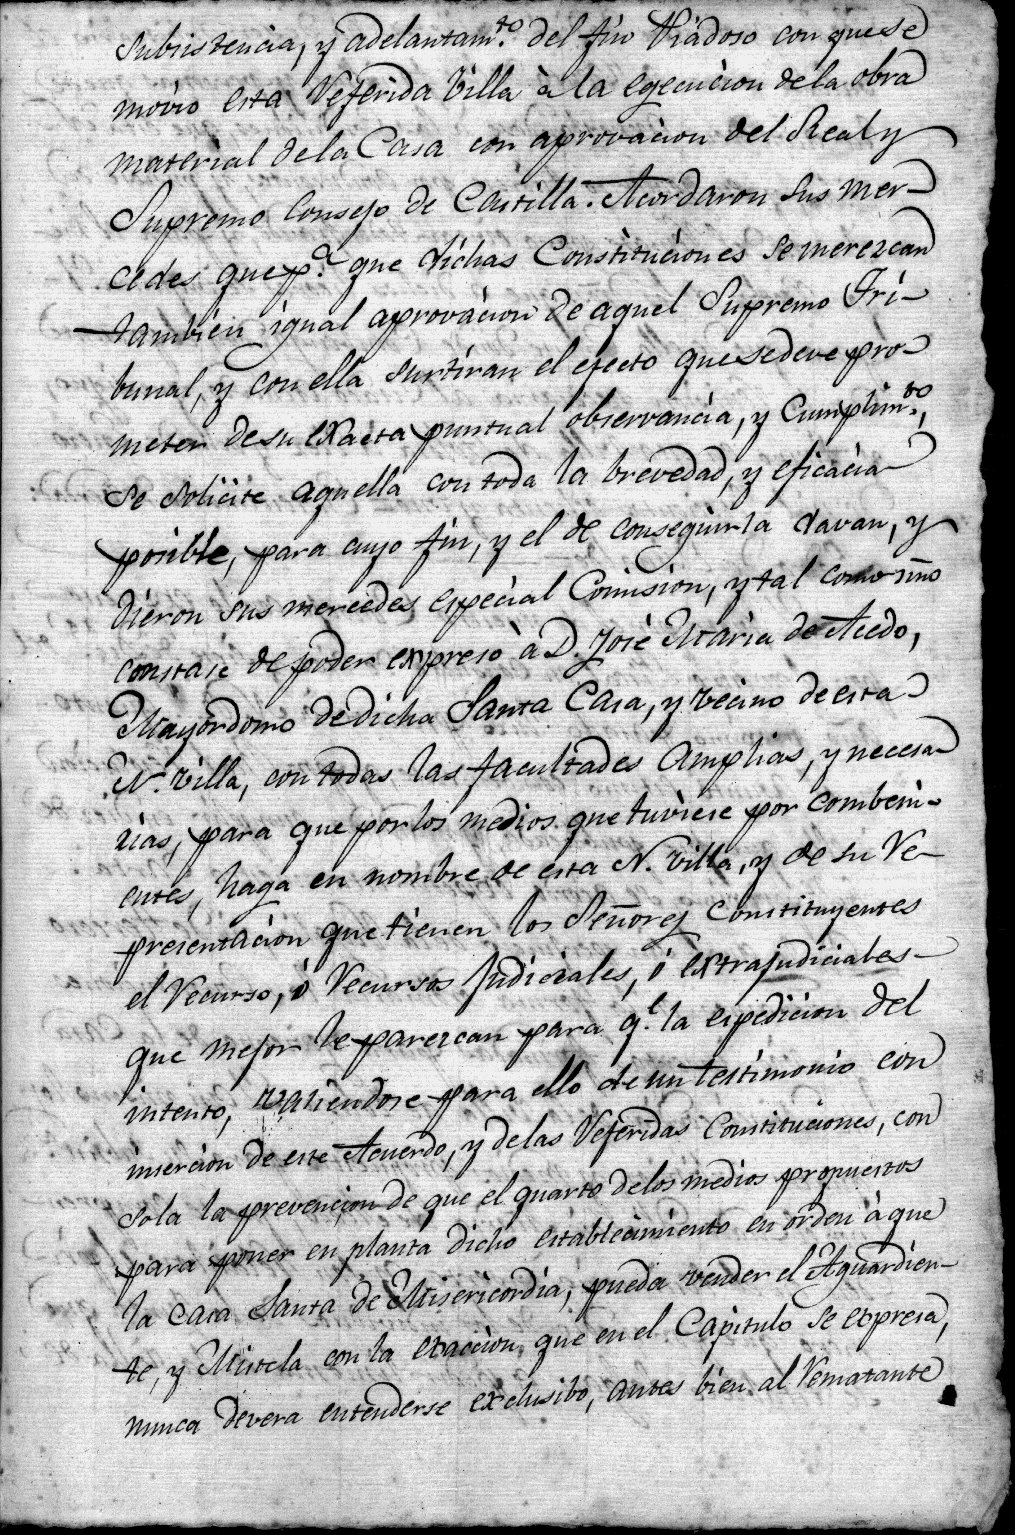 subsistencia, y adelantam.to del fin Piadoso con que se
movio esta Referida Villa à la egecucion de la obra
material de la Casa con aprovacion del Real y
Supremo Consejo de Castilla. Acordaron sus mer-
cedes que p.a que dichas Constituciones se merezcan
tambien igual aprovacion de aquel Supremo Tri-
bunal, y con ella surtiran el efecto que se deve pro-
meter de su exacta puntual observancia, y Cumplim.to,
se solicite aquella con toda la brevedad, y eficacia
posible, para cuyo fin, y el de conseguirla davan, y
dieron sus mercedes especial Comision, y tal como si no
constase de poder expreso à D. José Maria de Acedo,
Mayordomo de dicha Santa Casa, y vecino de esta
N. Villa, con todas las facultades amplias, y necesa-
rias, para que por los medios que tuviese por combeni-
entes, haga en nombre de esta N. Villa, y de su Re-
presentacion que tienen los Señores Constituyentes
el Recurso, ó Recursos Judiciales, ó extrajudiciales
que mejor le parezcan para q.e la espedicion del
intento, valiendose para ello de un testimonio con
insercion de este Acuerdo, y de las Referidas Constituciones, con
sola la prevencion de que el quarto de los medios propuestos
para poner en planta dicho establecimiento en orden à que
la Casa Santa de Misericordia, pueda vender el Aguardien-
te, y Mistela con la exaccion que en el Capitulo se expresa,
nunca devera entenderse exclusibo, antes bien al Rematante